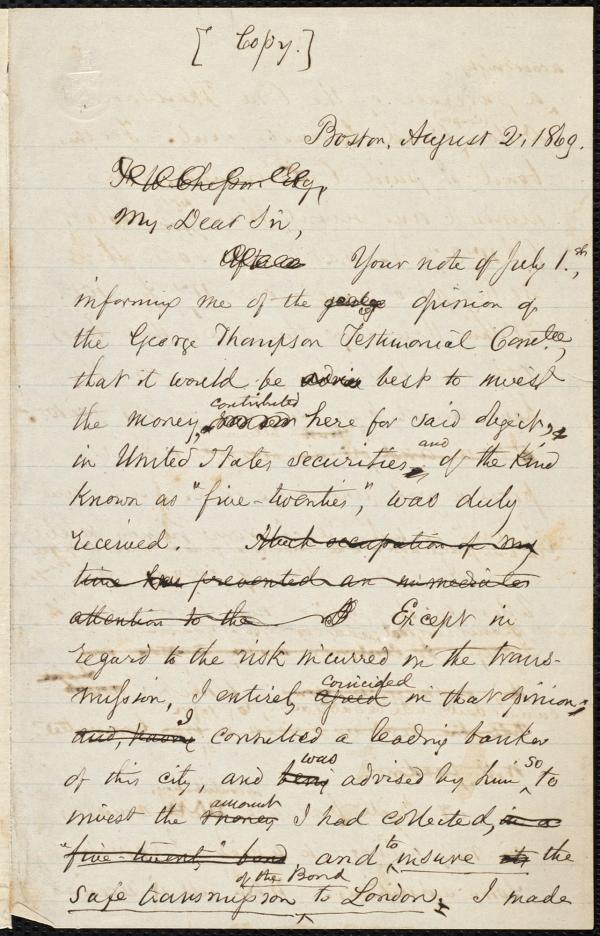 [Copy.]
Boston, August 2, 1869.
F. W. Chesson Esq,
My Dear Sir,
Your note of July 1.st,
informing me of the opinion of
the George Thompson Testimonial Comtee,
that it would be best to invest
the money, contributed here for said object,
in United States securities, and of the kind
known as "five-twenties", was duly
received. Much occupation of my
time has prevented an immediate
attention to the Except in
regard to the risk incurred in the trans-
mission, I entirely agreed coincided in that opinion;
and, having I consulted a leading banker
of this city, and being was advised by him so to
invest the money amount I had collected, in a
"five-twenty" bond, and to insure its the
safe transmission of the Bond to London. I made